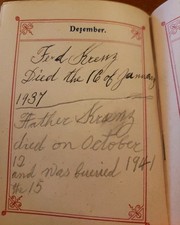 Dezember.
Ferd Krenz
Died the 16 of January
1937
Father Krenz
died on October
12
and was bueried 1941
the 15